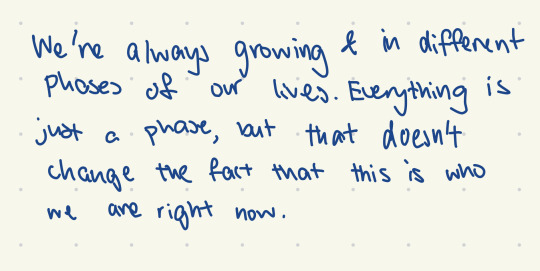 We're always growing & in different
phases of our lives. Everything is
just a phase, but that doesn't
change the fact that this is who
we are right now.